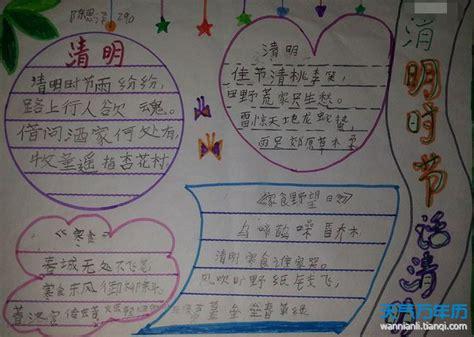 陈思 290
清明
清明时节雨纷纷,
路上行人欲 魂。
借问酒家何处有,
牧童遥指杏花村
清明
佳节清桃李
田野荒家只生愁。
雷惊天地龙蛇蛰,
雨足郊原草木柔
清明时节话清明
《寒食》
春城无处不飞花
寒食东风御柳
食野望
乌啼鹊噪昏乔木
清明寒食谁家哭。
风吹旷野纸钱飞,
古墓垒垒春草绿
天气万年历
wannianli.tianqi.com